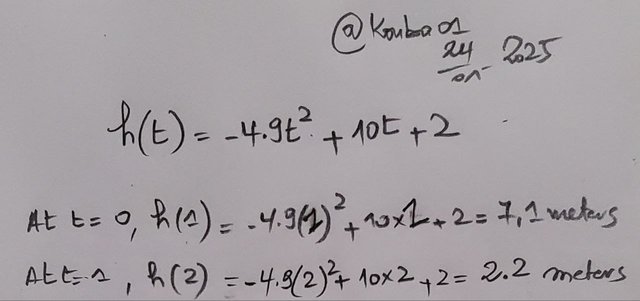 @Kouba01
24
01 2025
h(t) = -4.9t² + 10t + 2
At t = 0, h(1) = -4.9(1)² + 10x1 + 2 = 7,1 meters
At t = 1, h(2) = -4.9(2)² + 10x2 + 2 = 2.2 meters